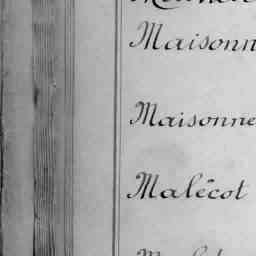 Maisonn
Maisonne
Malécot